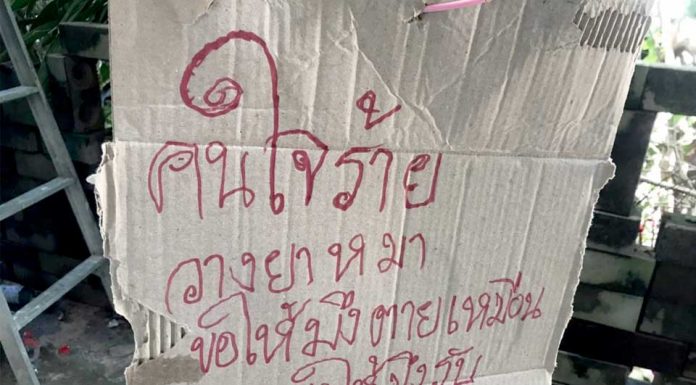 คนใจร้าย
วางยาหมา
ขอให้มึงตายเหมือน